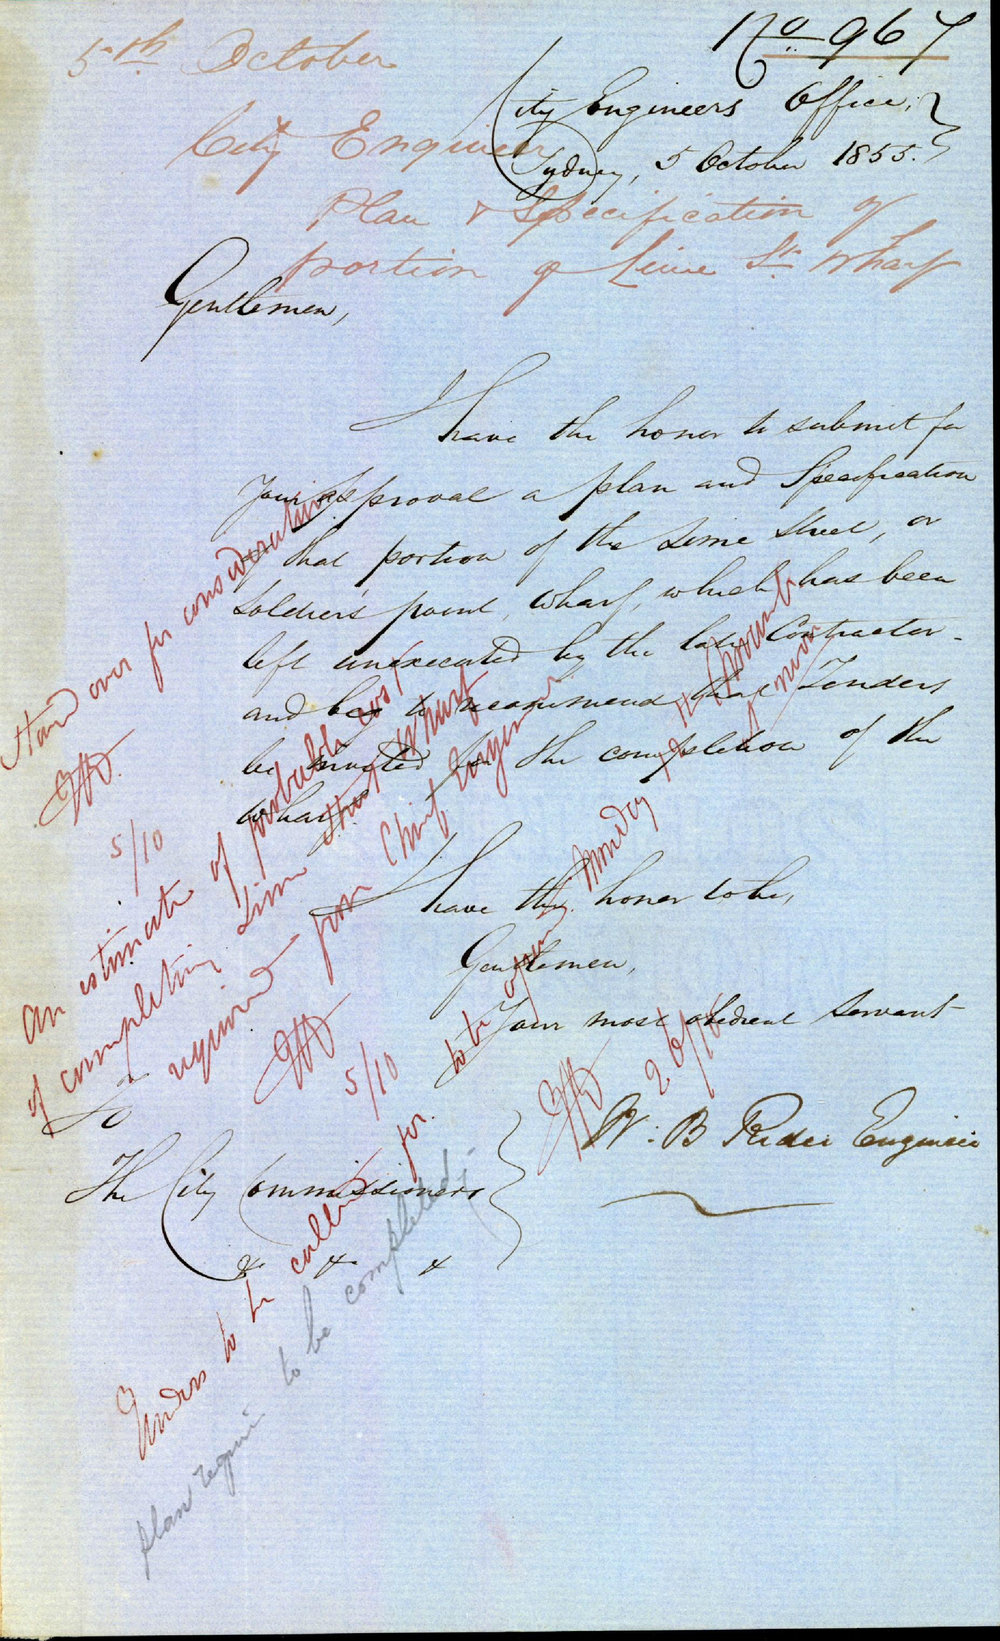 No 967
5th October
City Engineers Office,
Sydney, 5 October 1855.
City Engineer
Plan & Specification of
portion of Lime St. Wharf
Gentlemen,
I have the honor to submit for
Your approval a plan and Specification
of that portion of the Lime Street, or
Soldiers' point Wharf, which has been
left unexecuted by the late Contractor
and beg to recommend that Tenders
be invited for the completion of the
Wharf.
I have the honor to be,
Gentlemen,
Your most obedient Servant
W. B. Rider Engineer
To
The City Commissioners
& & &
Stand over for consideration
5/10
An estimate of probable cost
of completing Lime Street Wharf
required from Chief Engineer
5/10
Tenders to be called for
to be open Monday
26/10
plan require to be completed